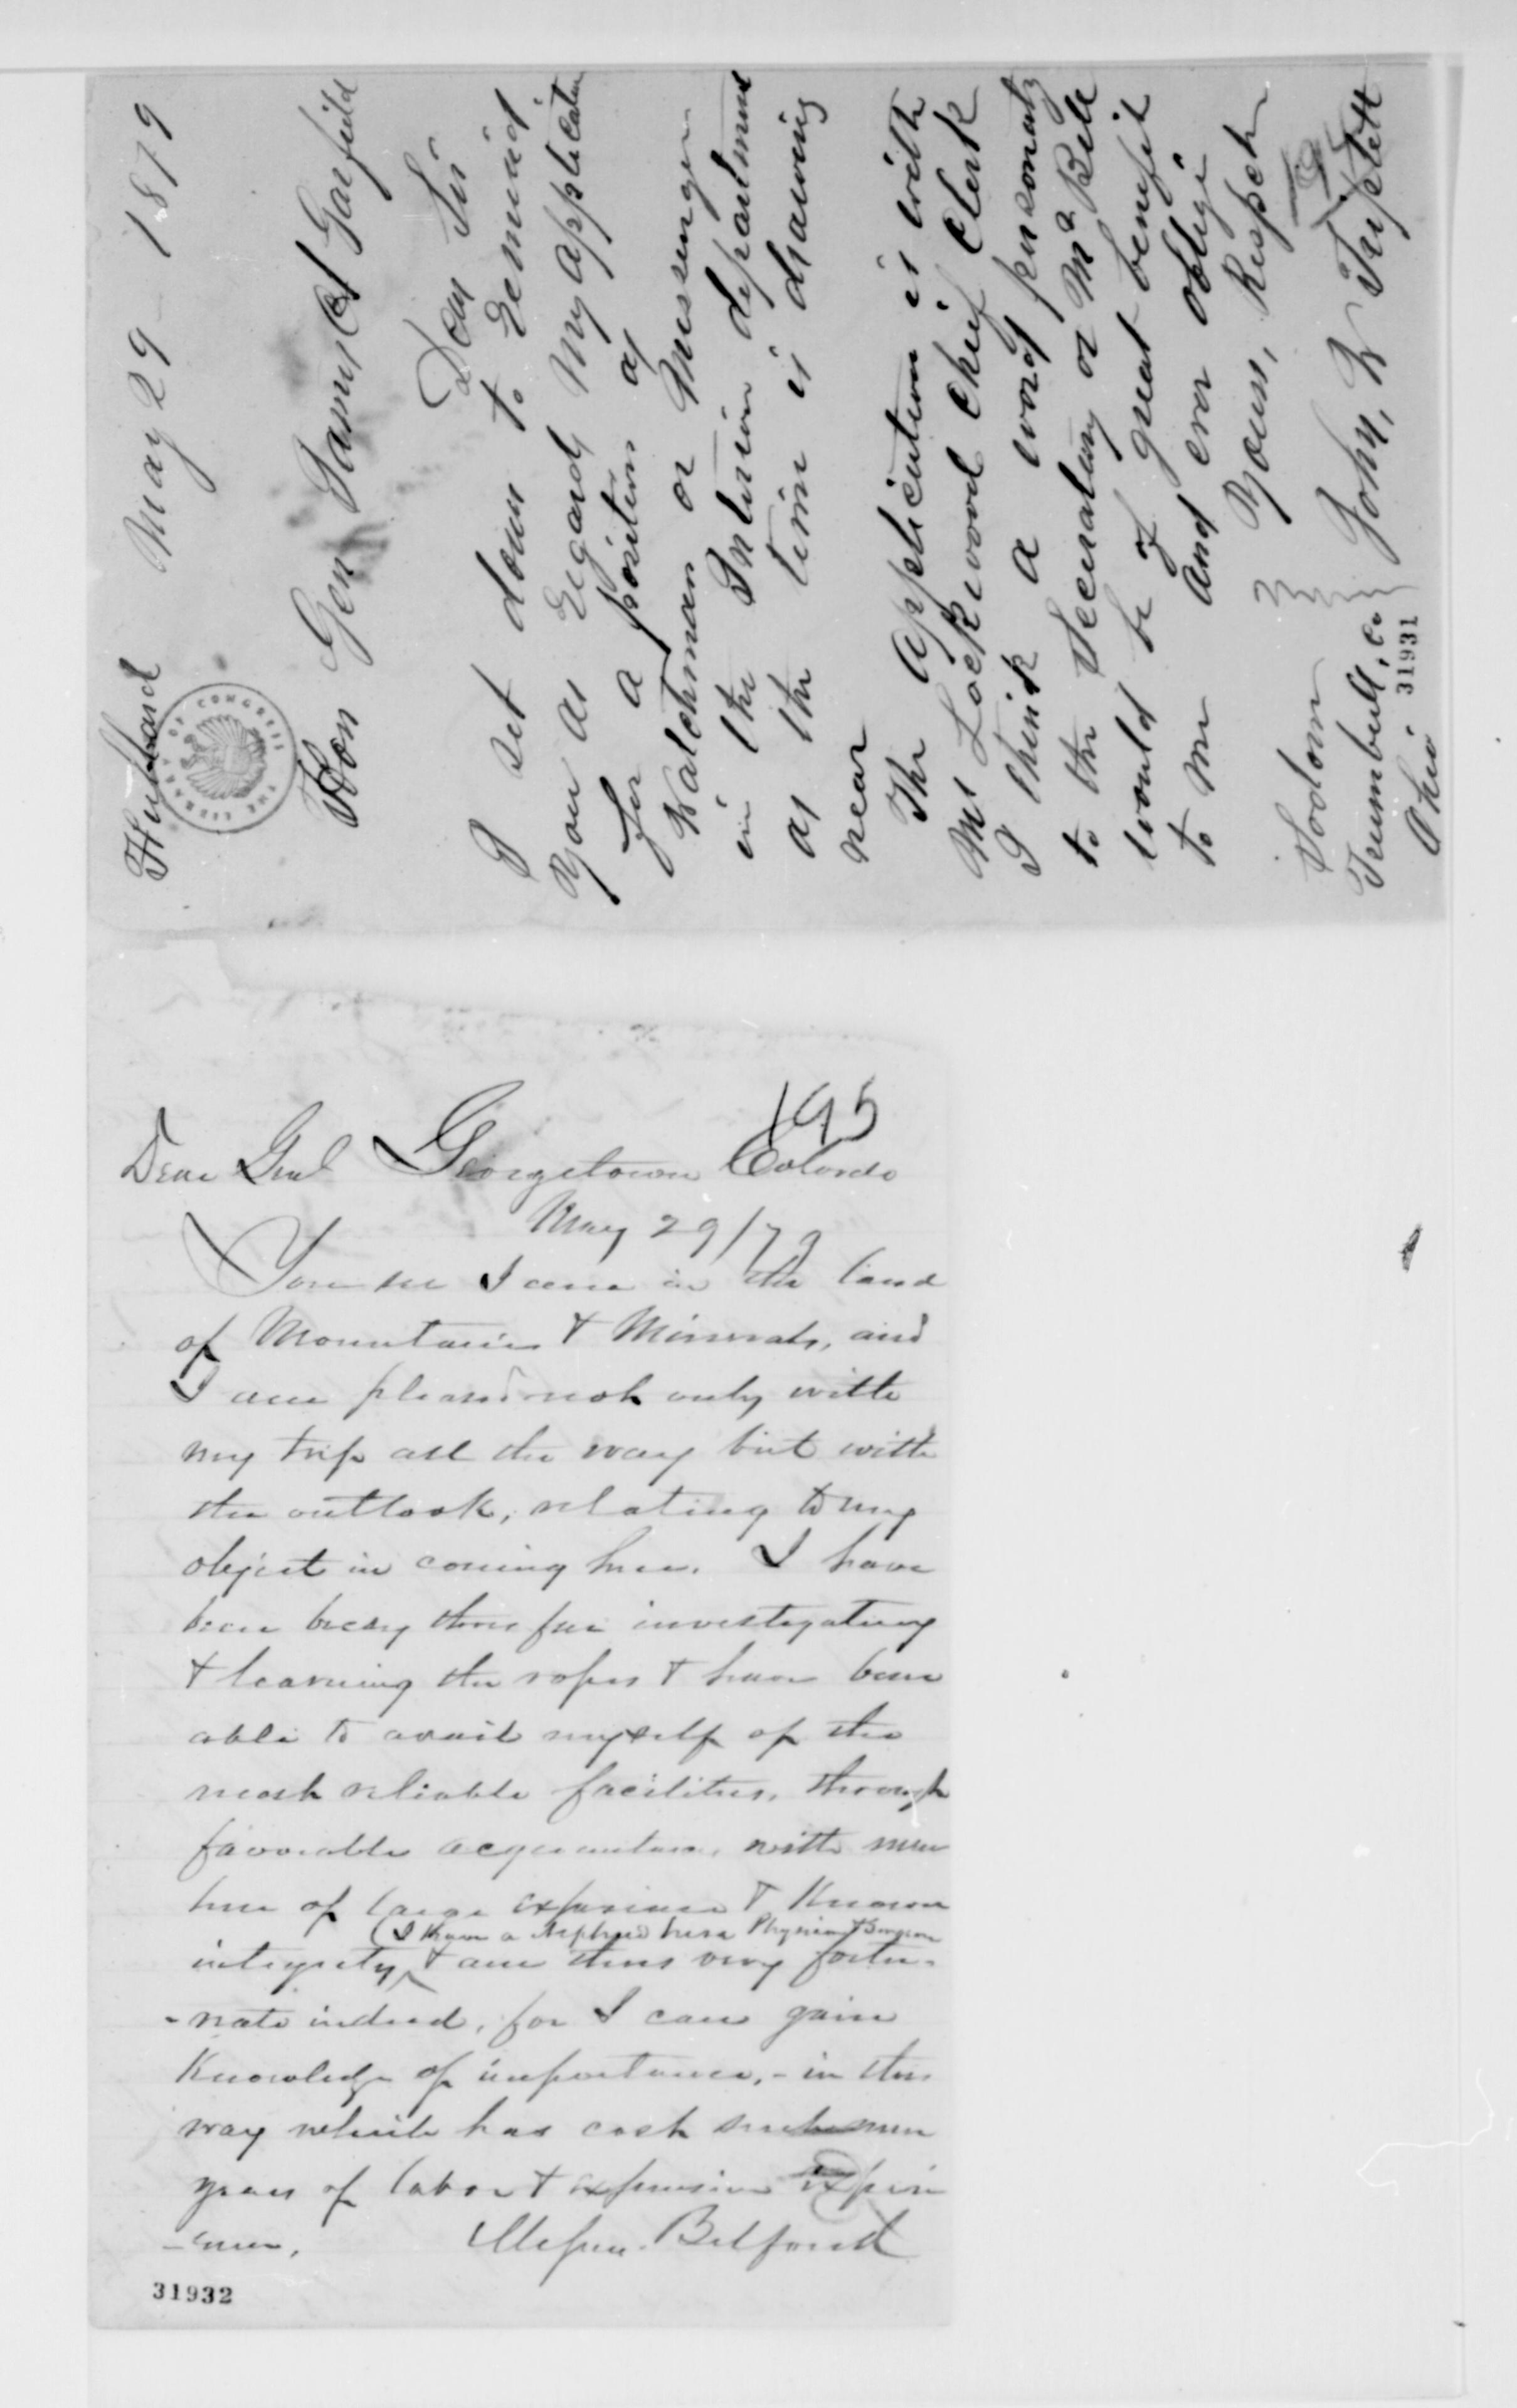 Hubbard May 29 1879
Hon Gen James A Garfield
Dear Sir
I set down to Remind
You as Regards My Application
for a position as
Watchman or Messenger
in the Interior department
as the time is drawing
near
The Application is with
Mr Lockwood Chief Clerk
I think a word personaly
to the Secratary or Mr Bell
would be of great benefit
to Me And ever oblige
Yours, Respect
John, W Triplett
Sodom
Trumbull, Co
Ohio
31931
THE LIBRARY OF CONGRESS
195
Dear Genl Georgetown Colorado
May 29/79
You see I am in the land
of Mountains & Minerals, and
I am pleased not only with
my trip all the way but with
the outlook, relating to my
object in coming here. I have
been busy thus far investigating
& learning the ropes & have been
able to avail myself of the
most reliable facilities, through
favorable acquaintance, with men
here of large experience & Known
(I have a Nephew here Physician & Surgeon
integrity, & am thus very fortu-
-nate indeed, for I can gain
Knowledge of importance, - in this
way which has cost such men
years of labor & expensive experi
-ence. Messrs. Belford
31932